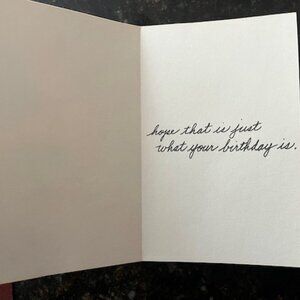 hope that is just
what your birthday is.